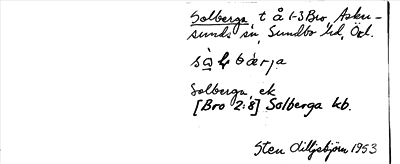 Solberga, t å 1-3 Bro, Asker-
sunds sn, Sundbo hd, Öd.
Solberga, ek
[Bro 2:8] Solberga kb.
Sten Lilljebjörn 1953